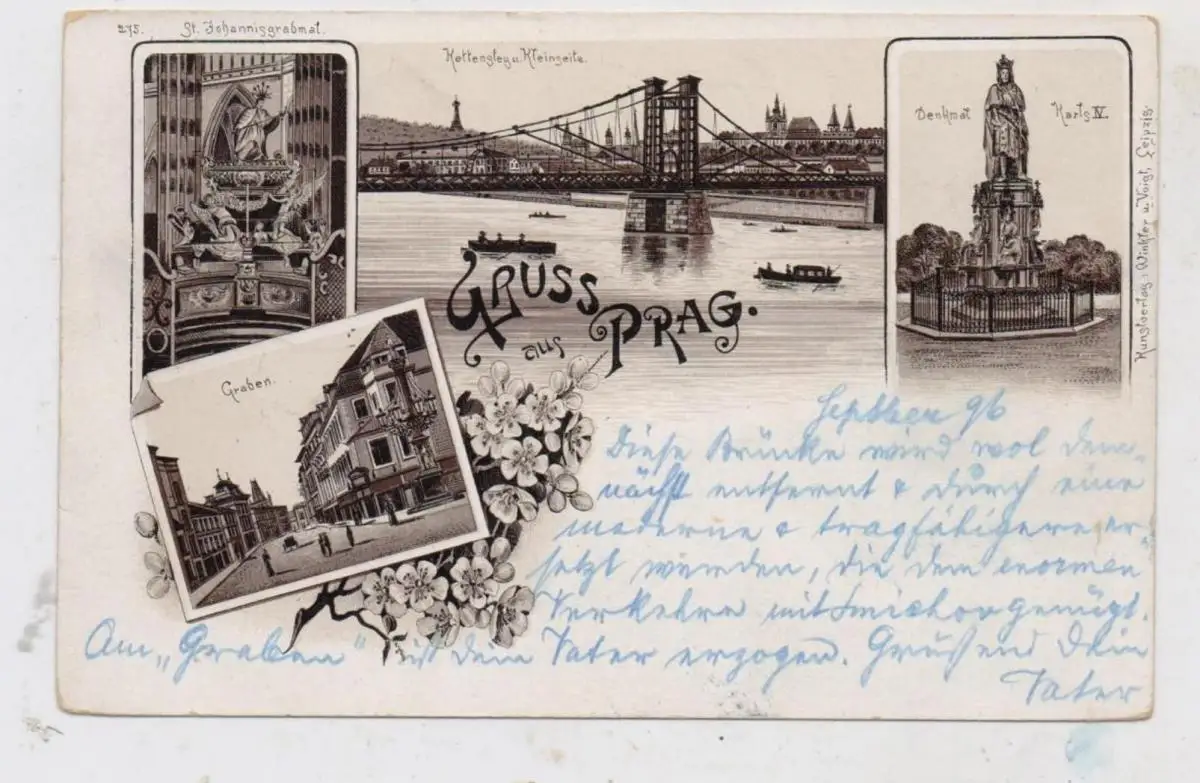 275.
St. Johannisgrabmal.
Kettensteg u. Kleinseite.
Denkmal Karls IV.
Kunstverlag: Winkler u. Voigt, Leipzig.
GRUSS
aus PRAG.
Graben.
Septber 96
Diese Brücke wird wol dem-
nächst entfernt & durch eine
moderne & tragfähigere er-
setzt werden, die dem enormen
Verkehre mit Smichov genügt.
Am „Graben" ist Dein Vater erzogen. Grüßend Dein
Vater